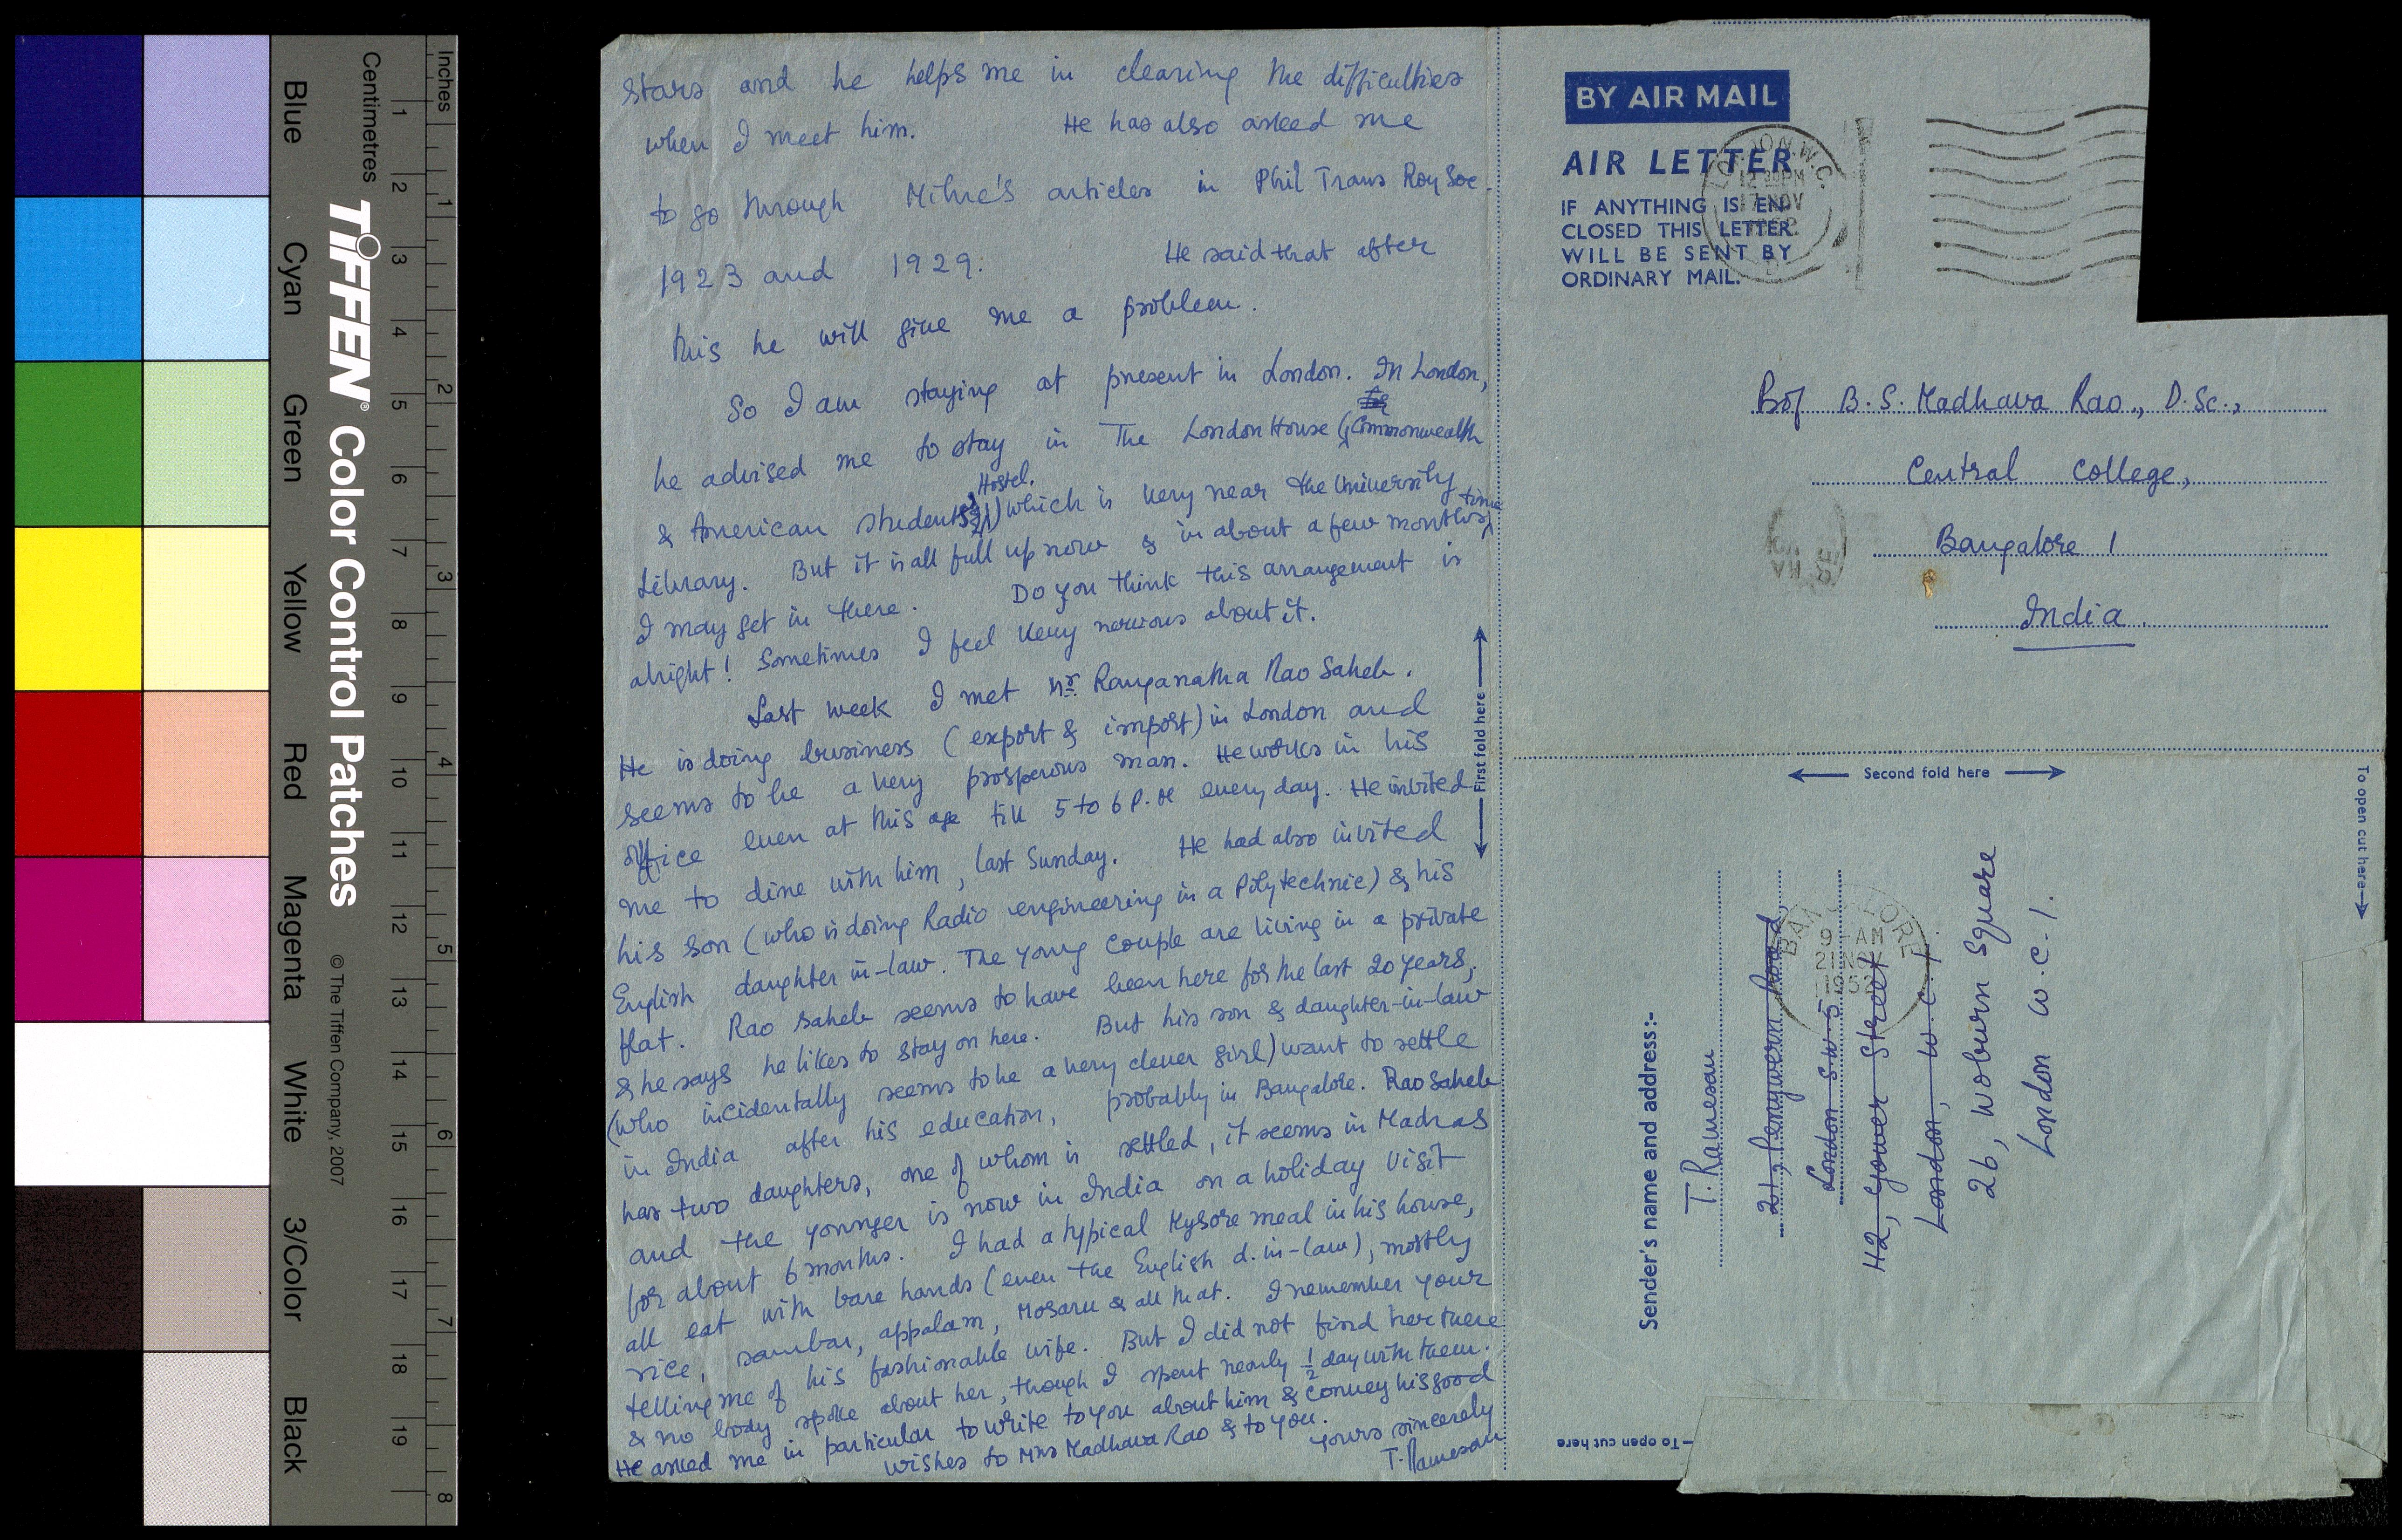 Inches
Centimetres
1 2 3 4 5 6 7 8
1 2 3 4 5 6 7 8 9 10 11 12 13 14 15 16 17 18 19
TIFFEN® Color Control Patches © The Tiffen Company, 2007
Blue Cyan Green Yellow Red Magenta White 3/Color Black
stars and he helps me in clearing the difficulties
when I meet him. He has also asked me
to go through Milne's articles in Phil Trans Roy Soc.
1923 and 1929. He said that after
this he will give me a problem.
So I am staying at present in London. In London,
he advised me to stay in The London House (Commonwealth
& American students Hostel.) which is very near the University
Library. But it is all full up now & in about a few months time
I may get in there. Do you think this arrangement is
alright! Sometimes I feel very nervous about it.
Last week I met Mr. Ranganatha Rao Saheb.
He is doing business (export & import) in London and
seems to be a very prosperous man. He works in his
office even at this age till 5 to 6 P.M every day. He invited
me to dine with him, last Sunday. He had also invited
his son (who is doing Radio engineering in a Polytechnic) & his
English daughter in-law. The young couple are living in a private
flat. Rao Saheb seems to have been here for the last 20 years,
& he says he likes to stay on here. But his son & daughter-in-law
(who incidentally seems to be a very clever girl) want to settle
in India after his education, probably in Bangalore. Rao Saheb
has two daughters, one of whom is settled, it seems in Madras
and the younger is now in India on a holiday visit
for about 6 months. I had a typical Mysore meal in his house,
all eat with bare hands (even the English d. in-law), mostly
rice, sambar, appalam, Mosaru & all that. I remember your
telling me of his fashionable wife. But I did not find her there
& no body spoke about her, though I spent nearly ½ day with them.
He asked me in particular to write to you about him & convey his good
wishes to Mrs Madhava Rao & to you.
Yours sincerely
T. Rameson
First fold here
BY AIR MAIL
AIR LETTER
IF ANYTHING IS EN-
CLOSED THIS LETTER
WILL BE SENT BY
ORDINARY MAIL.
LONDON.W.C.
12 30PM
17 NOV
Prof B.S. Madhava Rao., D.Sc.,
Central College,
Bangalore 1
India.
Second fold here
To open cut here
Sender's name and address:-
T. Rameson
21, Penywern Road,
London S.W 5
42, Gower Street
London, W.C.1
26, Woburn Square
London W.C.1.
BANGALORE
9-AM
21 NOV
1952
To open cut here